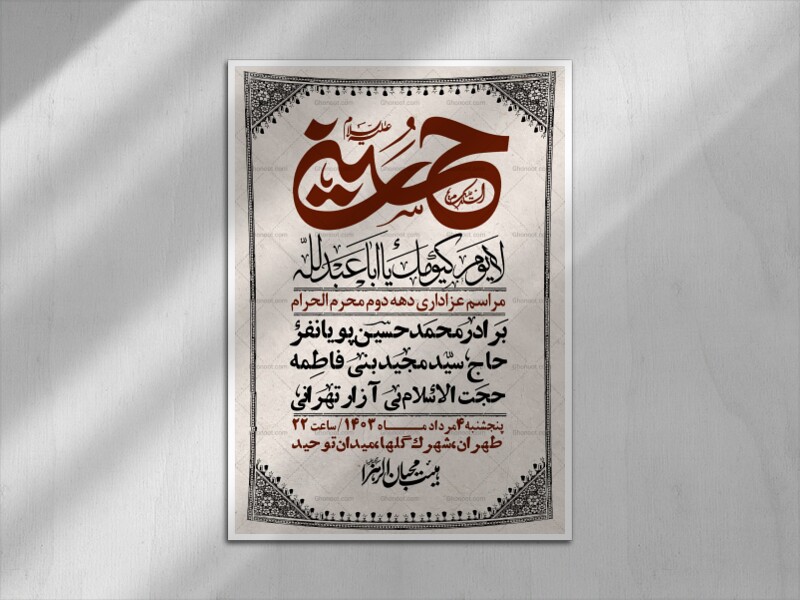 علیه السلام
حسین
لا یوم کیومک یا اباعبدلله
مراسم عزاداری دهه دوم محرم الحرام
برادر محمد حسین پویانفر
حاج سید مجید بنی فاطمه
حجت الاسلام بی آزار تهرانی
پنجشنبه ۴ مرداد ماه ۱۴۰۳ / ساعت ۲۲
طهران، شهرک گلها، میدان توحید
هیئت محبان الزهرا
Ghonoot.com